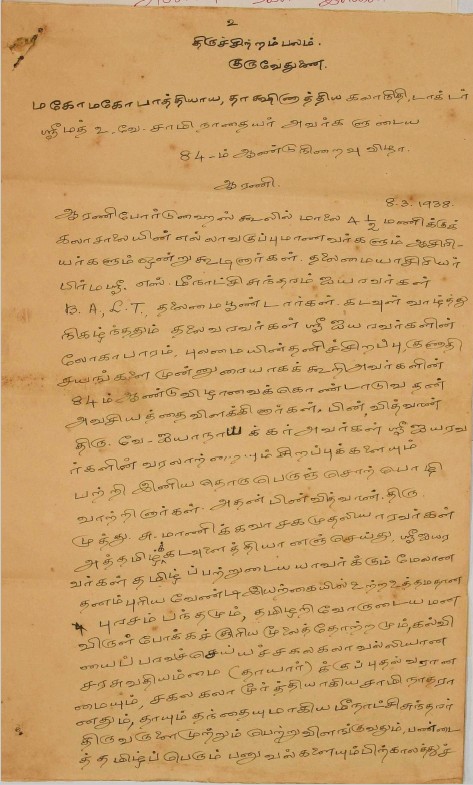 உ
திருச்சிற்றம்பலம்.
குருவேதுணை.
மகோமகோபாத்தியாய, தாக்ஷிணாத்திய கலாநிதி, டாக்டர்
ஸ்ரீமத் உ. வே. சாமிநாதையர் அவர்களுடைய
84-ம் ஆண்டுநிறைவு விழா.
ஆரணி.
8.3.1938.
ஆரணிபோர்டுஹைஸ்கூலில் மாலை 4 1/2 மணிக்குக்
கலாசாலையின் எல்லாவகுப்புமாணவர்களும் ஆசிரி-
யர்களும் ஒன்று கூடினார்கள். தலைமையாசிரியர்
பிர்மஸ்ரீ. எஸ். மீநாட்சிசுந்தரம் ஐயரவர்கள்
B.A., L.T., தலைமை பூண்டார்கள். கடவுள் வாழ்த்து
நிகழ்ந்ததும் தலைவரவர்கள் ஸ்ரீ ஐயரவர்களின்
லோகோபாரம், புலமையின்தனிச்சிறப்பு, குணாதி
சயங்களை முன்னுரையாகக் கூறி அவர்களின்
84ம் ஆண்டுவிழாவைக்கொண்டாடுவதன்
அவசியத்தைவிளக்கினார்கள். பின் வித்வான்
திரு. வே-ஐயாநாயக்கர் அவர்கள் ஸ்ரீ ஐயரவ
ர்களின் வரலாற்றையும் சிறப்புக்களையும்
பற்றி இனிய தொரு பெருஞ் சொற் பொழி
வாற்றினார்கள். அதன்பின் வித்வான். திரு.
முத்து. சு. மாணிக்கவாசகமுதலியாரவர்கள்
அத்தமிழ்க்கடவுளைத்தியானஞ்செய்து, ஸ்ரீஐயர
வர்கள் தமிழ்ப்பற்றுடையயாவர்க்கும் மேலான
தனம்புரிய வேண்டி இயற்கையில் உற்ற உத்தமதான
புரசம் பந்தமும், தமிழறிவோருடைய மன
விருள் போக்கச் சூரிய மூலைத்தோற்றமும், கல்வி
யைப் பரவச்செய்யச்சகலகலாவல்லியான
சரசுவதியம்மை (தாயார்) க்குப்புதல்வரான
மையும், சகலகலா மூர்த்தியாகிய சாமி நாதரா
னதும், தாயும் தந்தையுமாகிய மீநாட்சிசுந்தரர்
திருவருளைமுற்றும் பெற்றுவிளங்குவதும், பண்டை
த் தமிழ்ப் பெரும் பனுவல்களையும்பிற்காலத்துச்